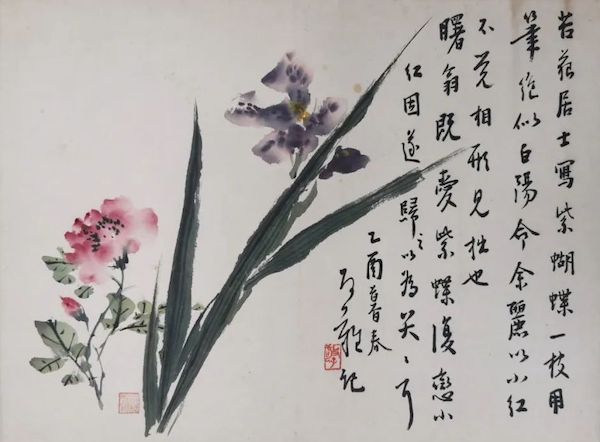 居士寫紫蝴蝶一枝用
筆絶似白陽命余麗以小紅
不覺相形見拙也
曙翁既愛紫蝶復戀小
紅因遂歸之以為笑〻耳
乙酉暮春
記